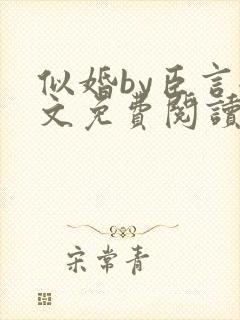 似婚by臣言
文免費閱讀
宋常青